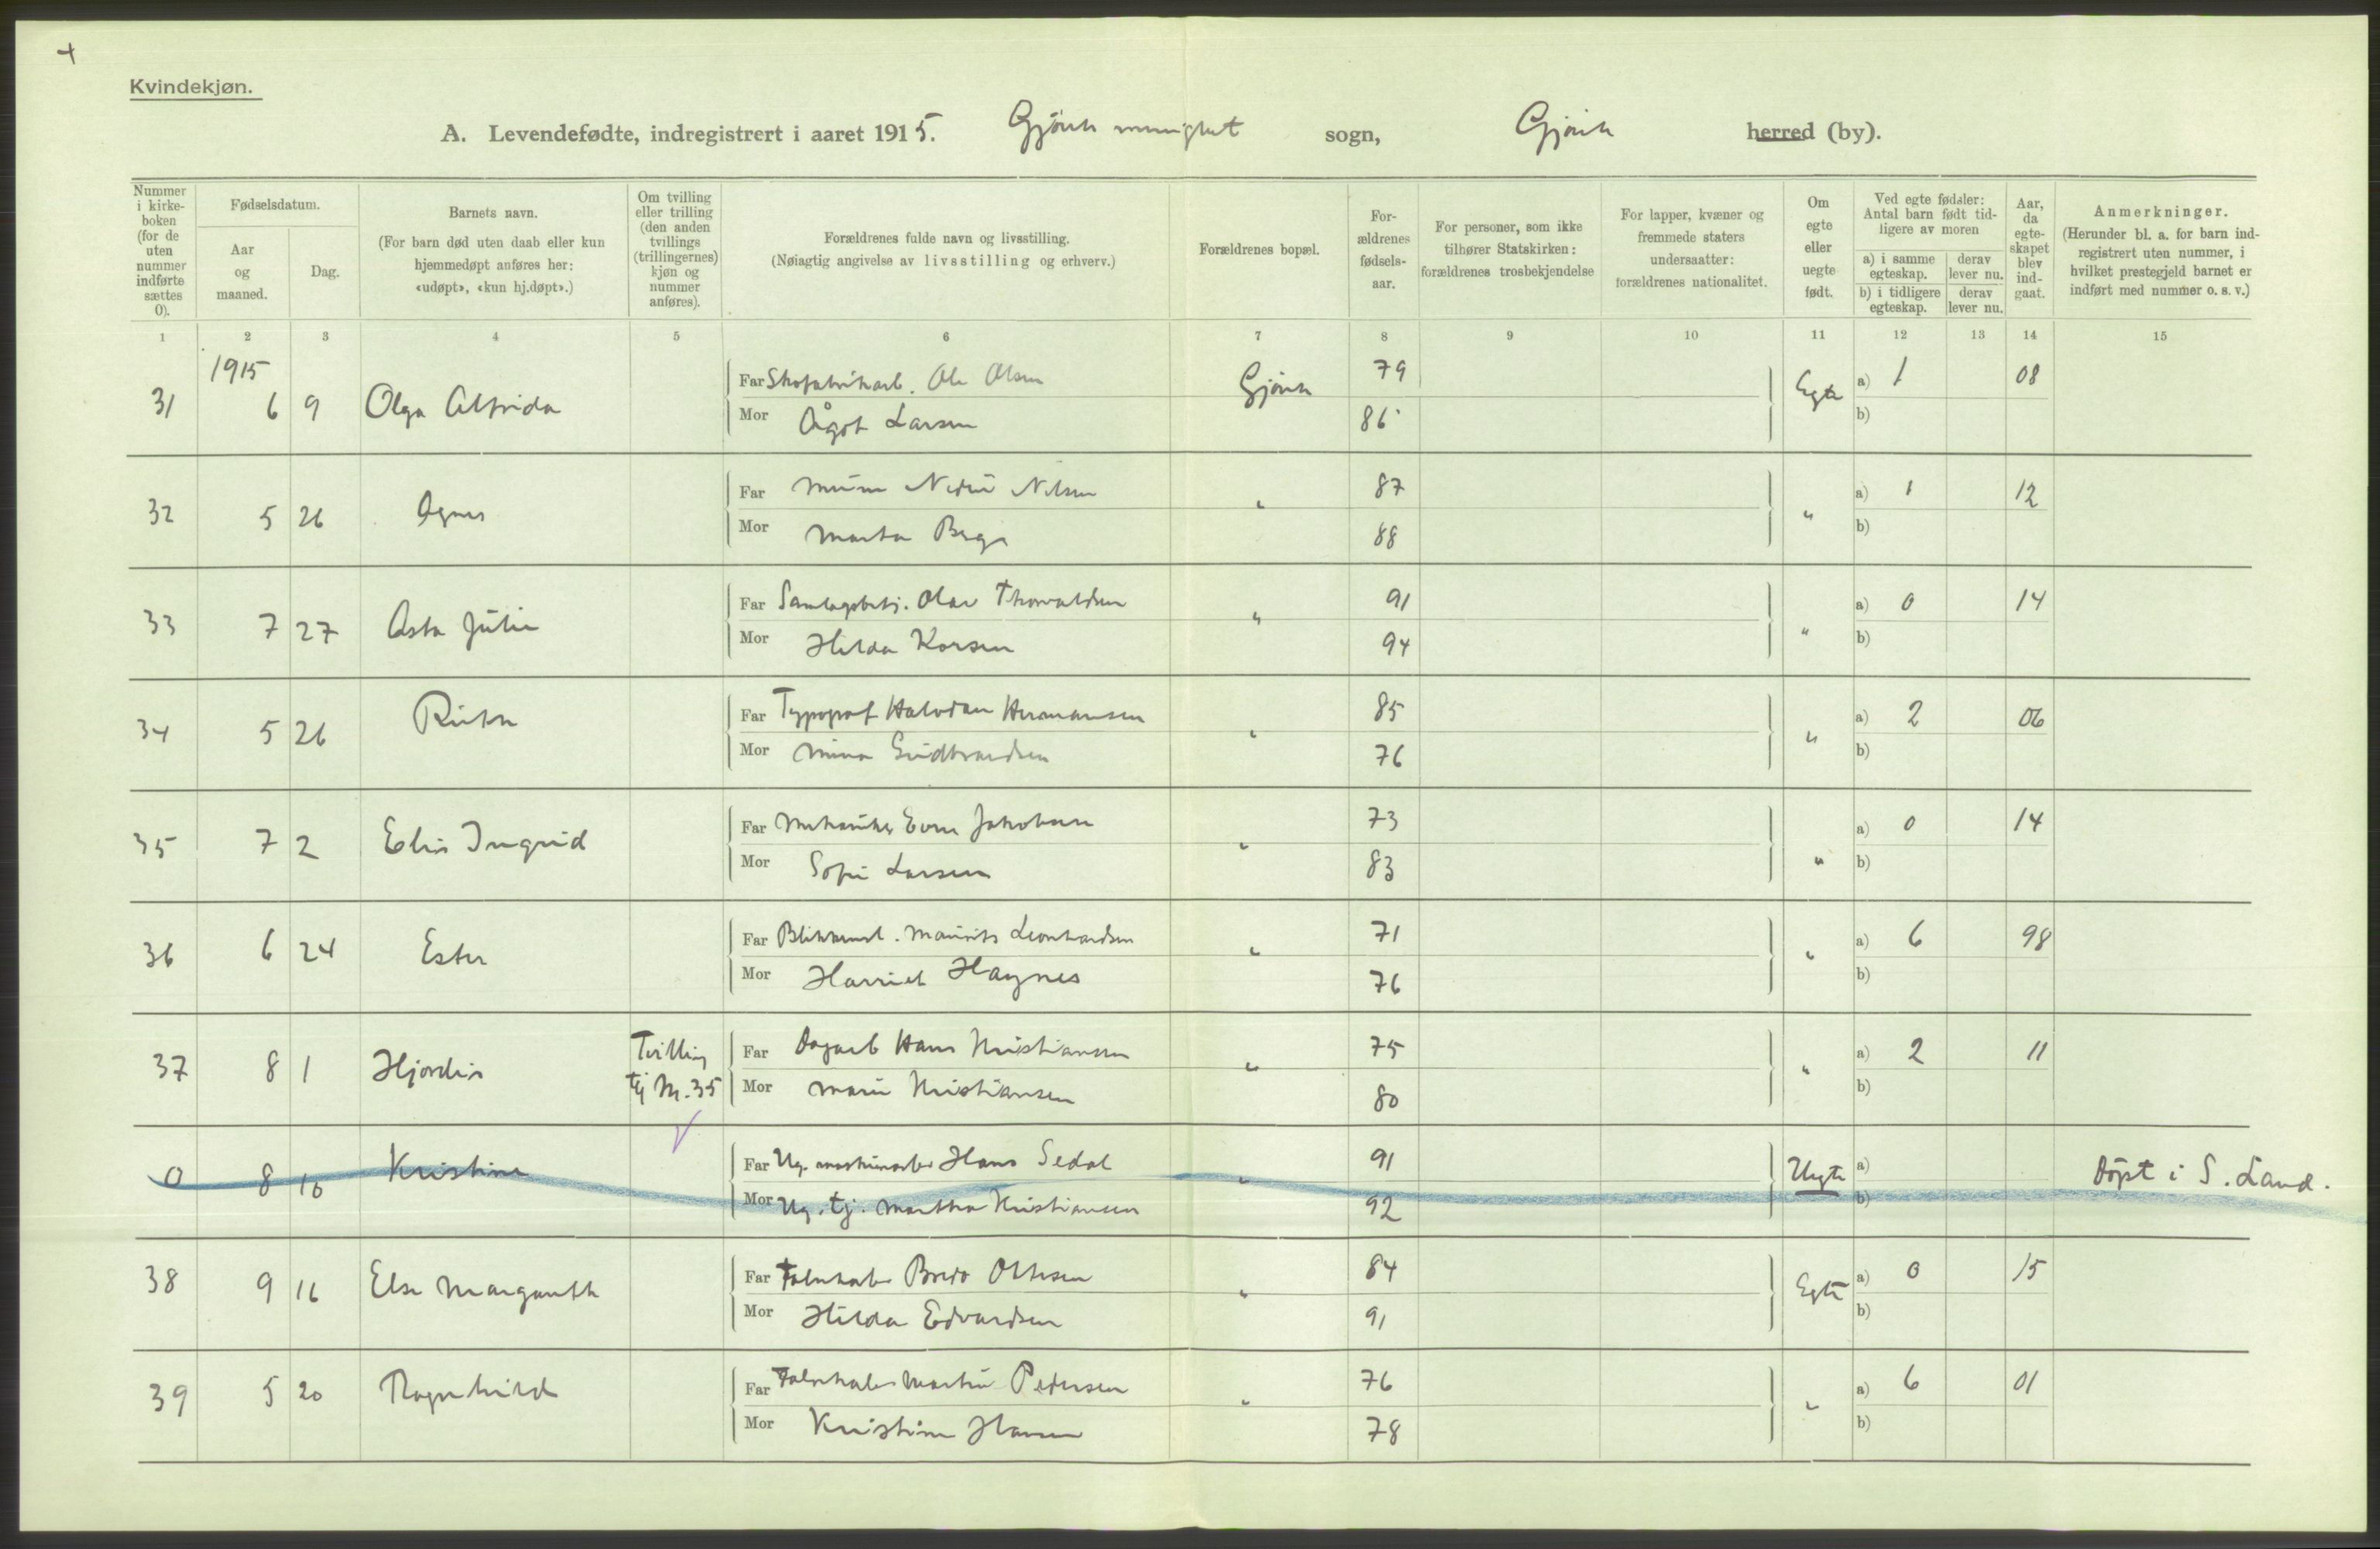 4
Kvindekjøn.
A. Levendefødte, indregistrert i aaret 1915. Gjövik sogn, Gjövik herred (by).
Nummer i kirkeboken (for de uten nummer indførte sættes 0).
Fødselsdatum.
Aar og maaned.
Dag.
Barnets navn.
(For barn død uten daab eller kun hjemmedøpt anføres her: «udøpt», «kun hj.døpt».)
Om tvilling eller trilling (den anden tvillings (trillingernes) kjøn og nummer anføres).
Forældrenes fulde navn og livsstilling.
(Nøiagtig angivelse av livsstilling og erhverv.)
Forældrenes bopæl.
Forældrenes fødselsaar.
For personer, som ikke tilhører Statskirken: forældrenes trosbekjendelse
For lapper, kvæner og fremmede staters undersaatter: forældrenes nationalitet.
Om egte eller uegte født.
Ved egte fødsler: Antal barn født tidligere av moren
a) i samme egteskap.
derav lever nu.
b) i tidligere egteskap.
derav lever nu.
Aar, da egteskapet blev indgaat.
Anmerkninger.
(Herunder bl. a. for barn indregistrert uten nummer, i hvilket prestegjeld barnet er indført med nummer o. s. v.)
1 2 3 4 5 6 7 8 9 10 11 12 13 14 15
1915
31 6 9 Olga Alfrida Far Skofabrikarb. Ole Olsen Gjövik 79 Egte a) 1 08
Mor Ågot Larsen 86 b)
32 5 26 Agnes Far Nilsen " 87 " a) 1 12
Mor Marta Berge 88 b)
33 7 27 Asta Julie Far Samlagsbetj. Olav Thorvaldsen " 91 " a) 0 14
Mor Hilda Korsen 94 b)
34 5 26 Ruth Far Typograf Halvdan Hermansen " 85 " a) 2 06
Mor Mina Gudbrandsen 76 b)
35 7 2 Elis Ingrid Far Mekaniker Even Jakobsen " 73 " a) 0 14
Mor Sofie Larsen 83 b)
36 6 24 Ester Far Blikkensl. Maurits Leonhardsen " 71 " a) 6 98
Mor Harriet Haynes 76 b)
37 8 1 Hjördis Tvilling Far Dagarb Hans Kristiansen " 75 " a) 2 11
M. 35 Mor Marie Kristiansen 80 b)
0 8 16 Kristine Far Ug. maskinarbr Hans Sedal " 91 Uegte a) Döpt i S. Land.
Mor Ug. tj. Martha Kristiansen 92 b)
38 9 16 Else Margareth Far Fabrikarb Bredo Ottesen " 84 Egte a) 0 15
Mor Hilda Edvardsen 91 b)
39 5 20 Ragnhild Far Fabrikarb Martin Pedersen " 76 " a) 6 01
Mor Kristine Hansen 78 b)